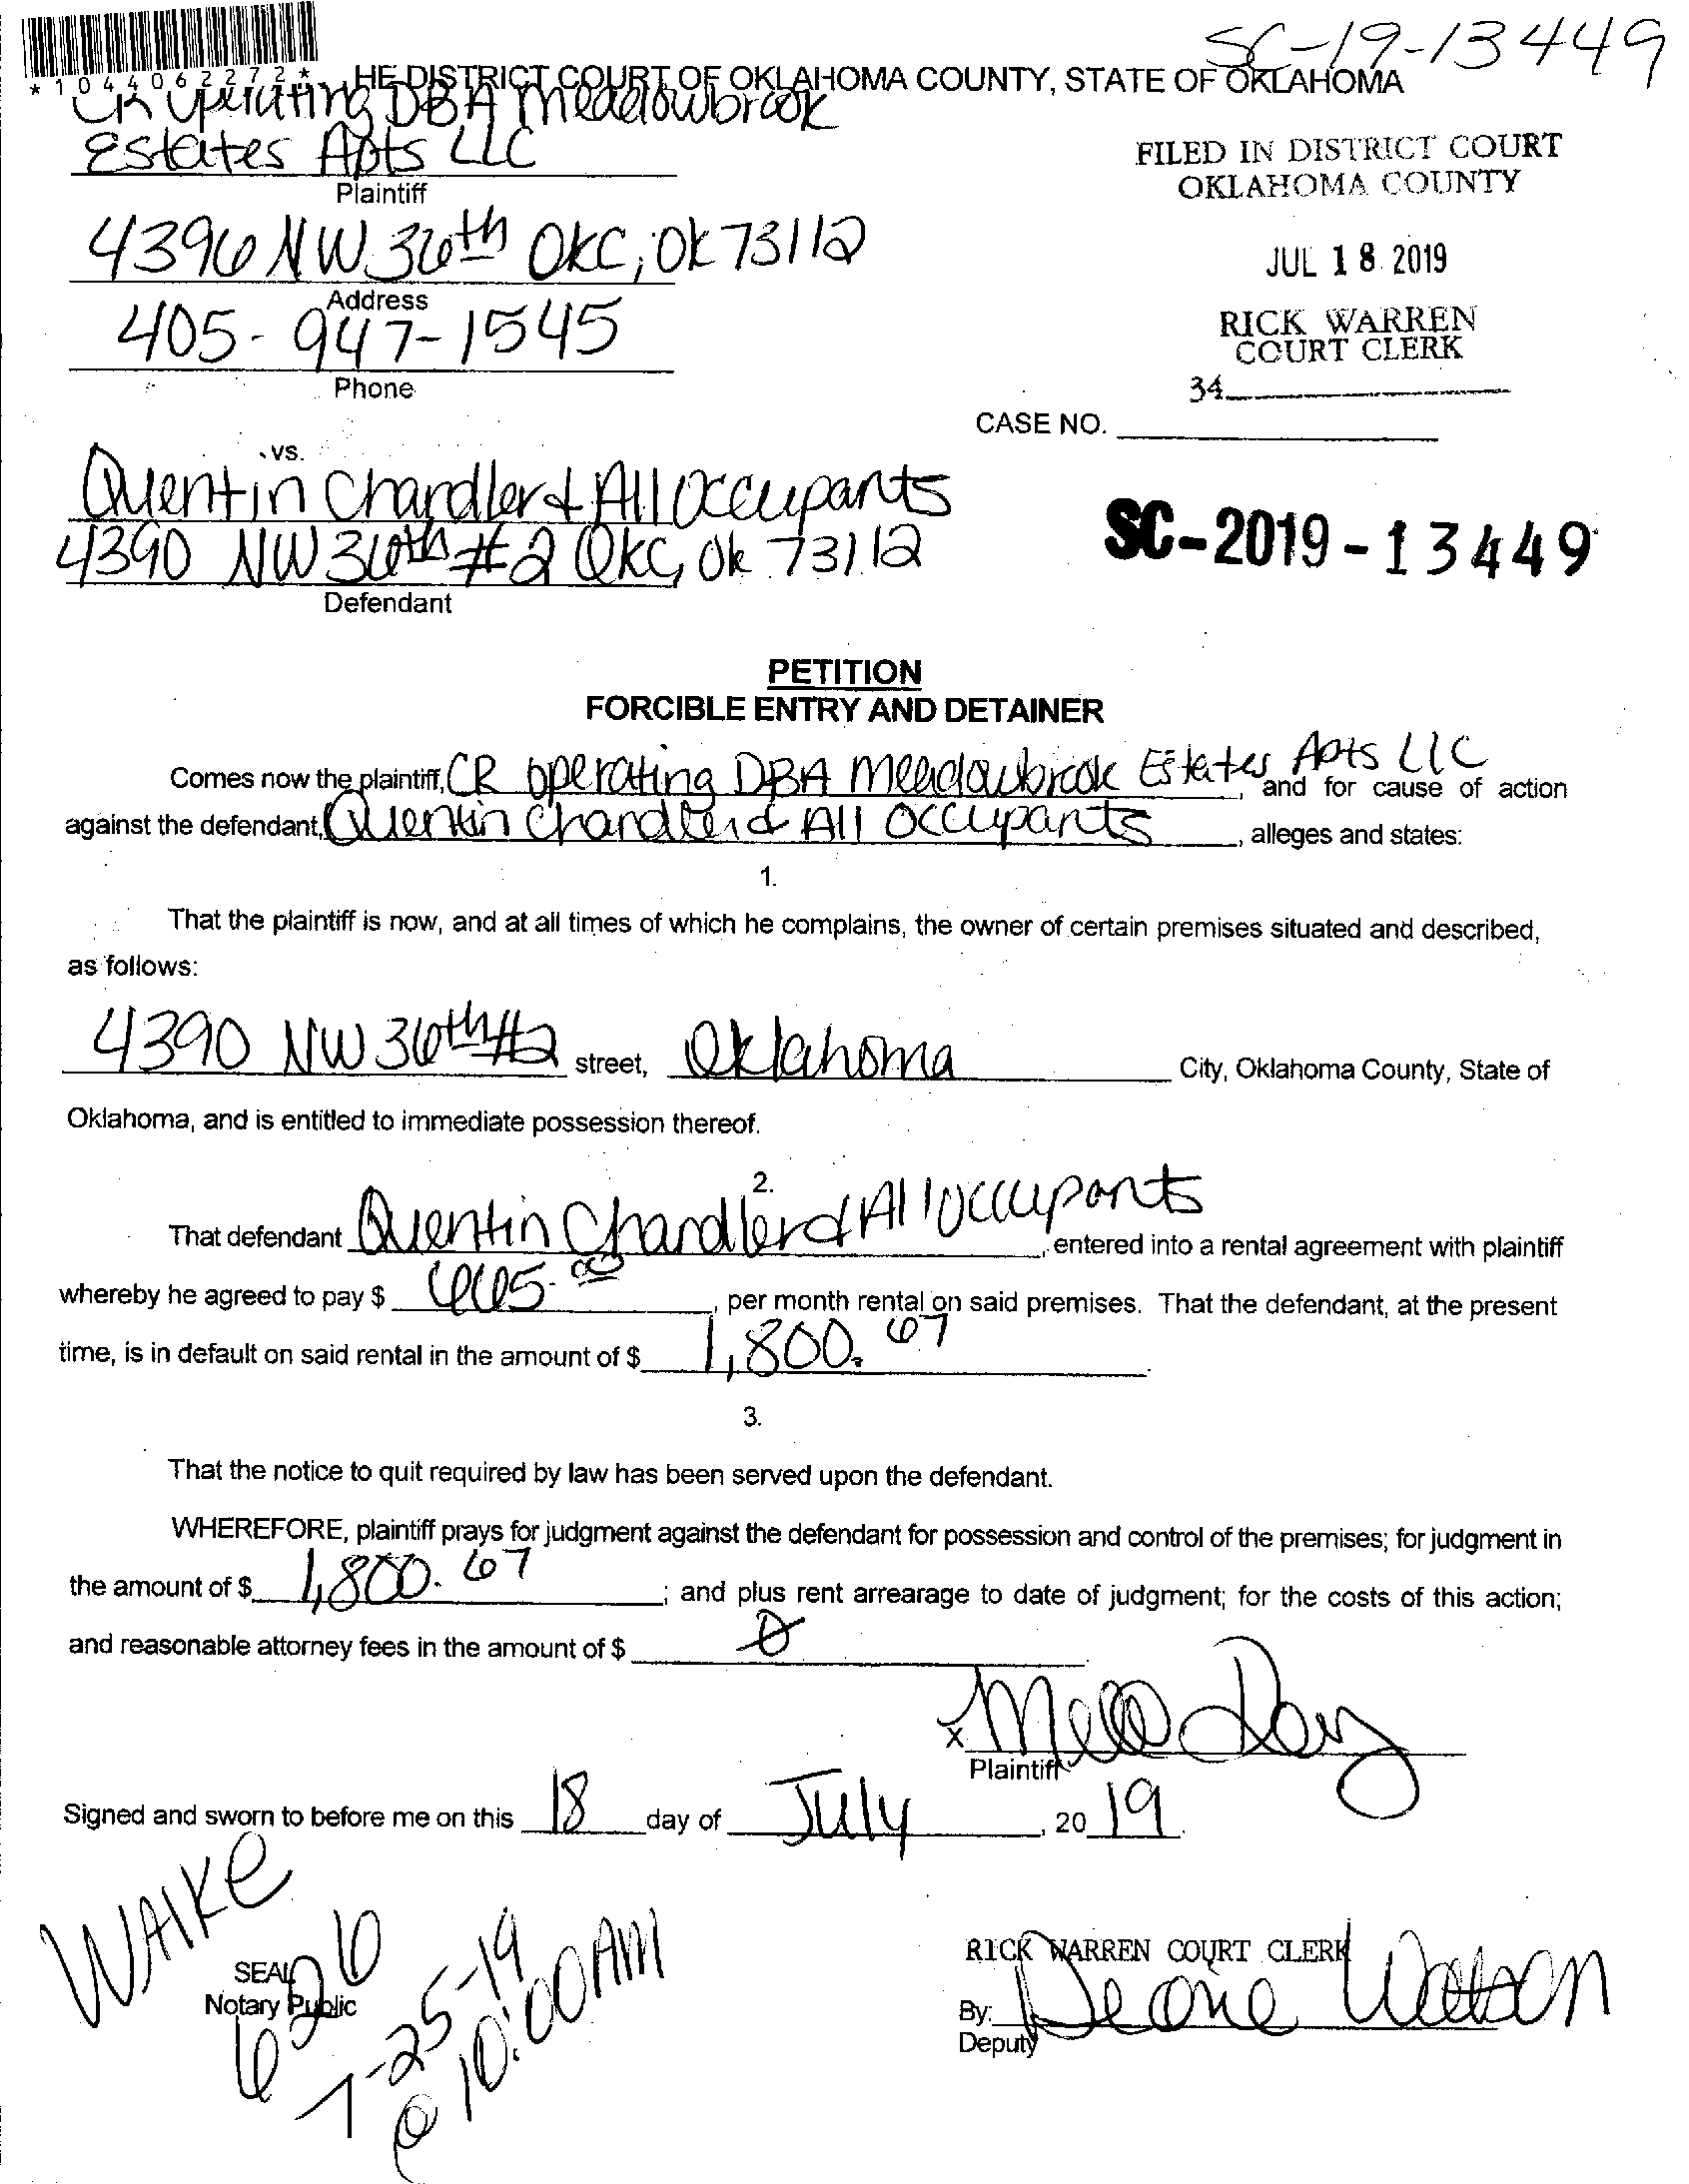 SC-19-13449
*1044062272*
HE DISTRICT COURT OF OKLAHOMA COUNTY, STATE OF OKLAHOMA
CR Operating DBA Meadowbrook
Estates Apts LLC
Plaintiff
FILED IN DISTRICT COURT
OKLAHOMA COUNTY
4396 NW 36th OKC, OK 73112
Address
JUL 18 2019
405-947-1545
Phone
RICK WARREN
COURT CLERK
34
CASE NO.
vs.
Quentin Chandler & All Occupants
4390 NW 36th #2 OKC, Ok 73112
Defendant
SC-2019-13449
PETITION
FORCIBLE ENTRY AND DETAINER
Comes now the plaintiff, CR Operating DBA Meadowbrook Estates Apts LLC, and for cause of action
against the defendant, Quentin Chandler & All Occupants, alleges and states:
1.
That the plaintiff is now, and at all times of which he complains, the owner of certain premises situated and described,
as follows:
4390 NW 36th #2 street, Oklahoma City, Oklahoma County, State of
Oklahoma, and is entitled to immediate possession thereof.
2.
That defendant Quentin Chandler & All Occupants, entered into a rental agreement with plaintiff
whereby he agreed to pay $ 665.00, per month rental on said premises. That the defendant, at the present
time, is in default on said rental in the amount of $ 1,800.67.
3.
That the notice to quit required by law has been served upon the defendant.
WHEREFORE, plaintiff prays for judgment against the defendant for possession and control of the premises; for judgment in
the amount of $ 1,800.67; and plus rent arrearage to date of judgment; for the costs of this action;
and reasonable attorney fees in the amount of $ 0.
X
Plaintiff
Signed and sworn to before me on this 18 day of July, 2019.
WAIKE
SEAL
Notary Public
626
7-25-19
@ 10:00AM
RICK WARREN COURT CLERK
By: Deone Watson
Deputy